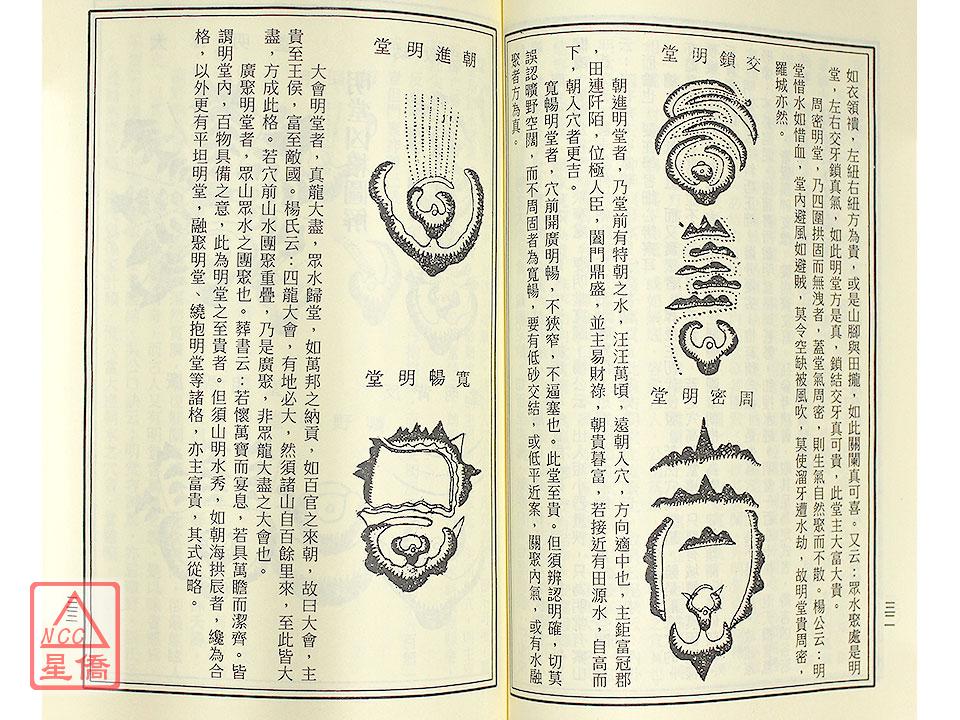 如衣領襘，左紐右紐方為貴，或是山腳與田攏，如此關闌真可喜。又云：眾水聚處是明
堂，左右交牙鎖真氣，如此明堂方是真，鎖結交牙真可貴，此堂主大富大貴。
周密明堂，乃四圍拱固而無洩者，蓋堂氣周密，則生氣自然聚而不散。楊公云：明
堂惜水如惜血，堂內避風如避賊，莫令空缺被風吹，莫使溜牙遭水劫，故明堂貴周密，
羅城亦然。
交鎖明堂
周密明堂
朝進明堂者，乃堂前有特朝之水，汪汪萬頃，遠朝入穴，方向適中也，主鉅富冠郡
，田連阡陌，位極人臣，闔門鼎盛，並主易財祿，朝貴暮富，若接近有田源水，自高而
下，朝入穴者更吉。
寬暢明堂者，穴前開廣明暢，不狹窄，不逼塞也。此堂至貴。但須辨認明確，切莫
誤認曠野空闊，而不周固者為寬暢，要有低砂交結，或低平近案，關聚內氣，或有水融
聚者方為真。
三二
朝進明堂
寬暢明堂
大會明堂者，真龍大盡，眾水歸堂，如萬邦之納貢，如百官之來朝，故曰大會，主
貴至王侯，富至敵國。楊氏云：四龍大會，有地必大，然須諸山自百餘里來，至此皆大
盡，方成此格。若穴前山水團聚重疊，乃是廣聚，非眾龍大盡之大會也。
廣聚明堂者，眾山眾水之團聚也。葬書云：若懷萬寶而宴息，若具萬瞻而潔齊。皆
謂明堂內，百物具備之意，此為明堂之至貴者。但須山明水秀，如朝海拱辰者，纔為合
格，以外更有平坦明堂，融聚明堂、繞抱明堂等諸格，亦主富貴，其式從略。
三三
NCC
星僑